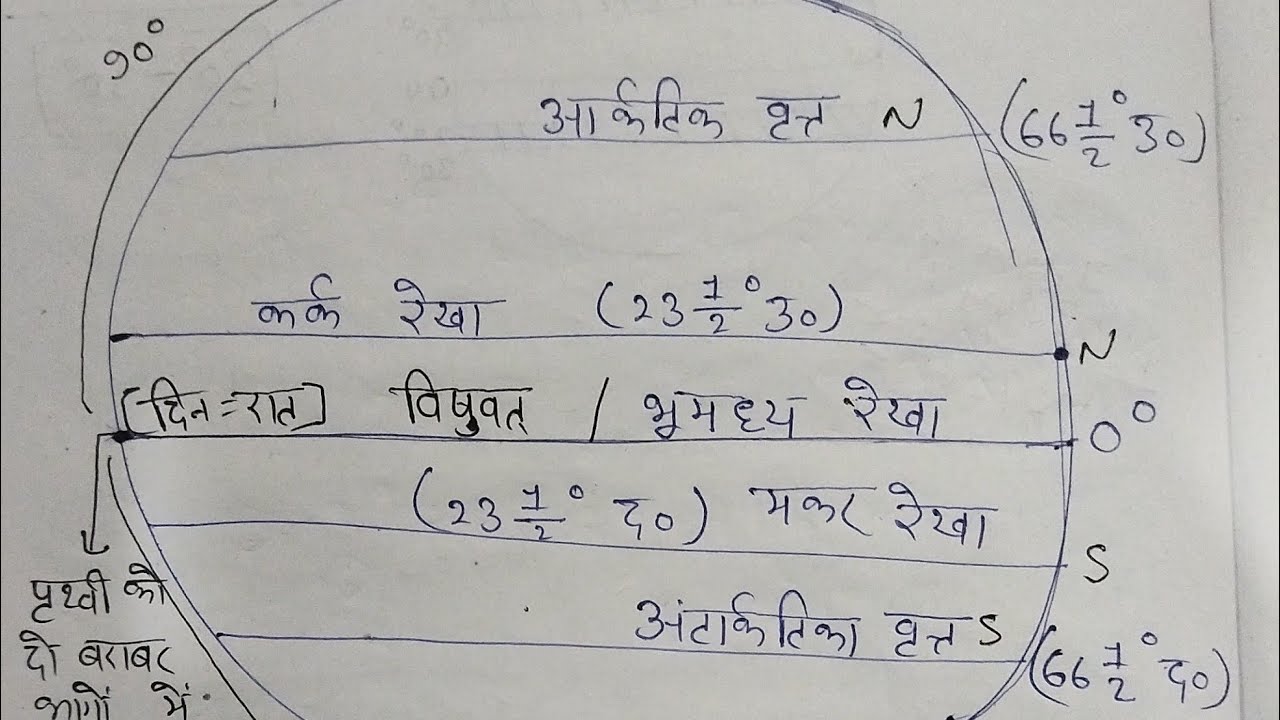 90°
आर्कटिक वृत्त N (66 1/2° उ०)
कर्क रेखा (23 1/2° उ०)
N
[दिन=रात] विषुवत् / भूमध्य रेखा 0°
(23 1/2° द०) मकर रेखा
S
पृथ्वी को
दो बराबर
भागों में
अंटार्कटिका वृत्त S (66 1/2° द०)